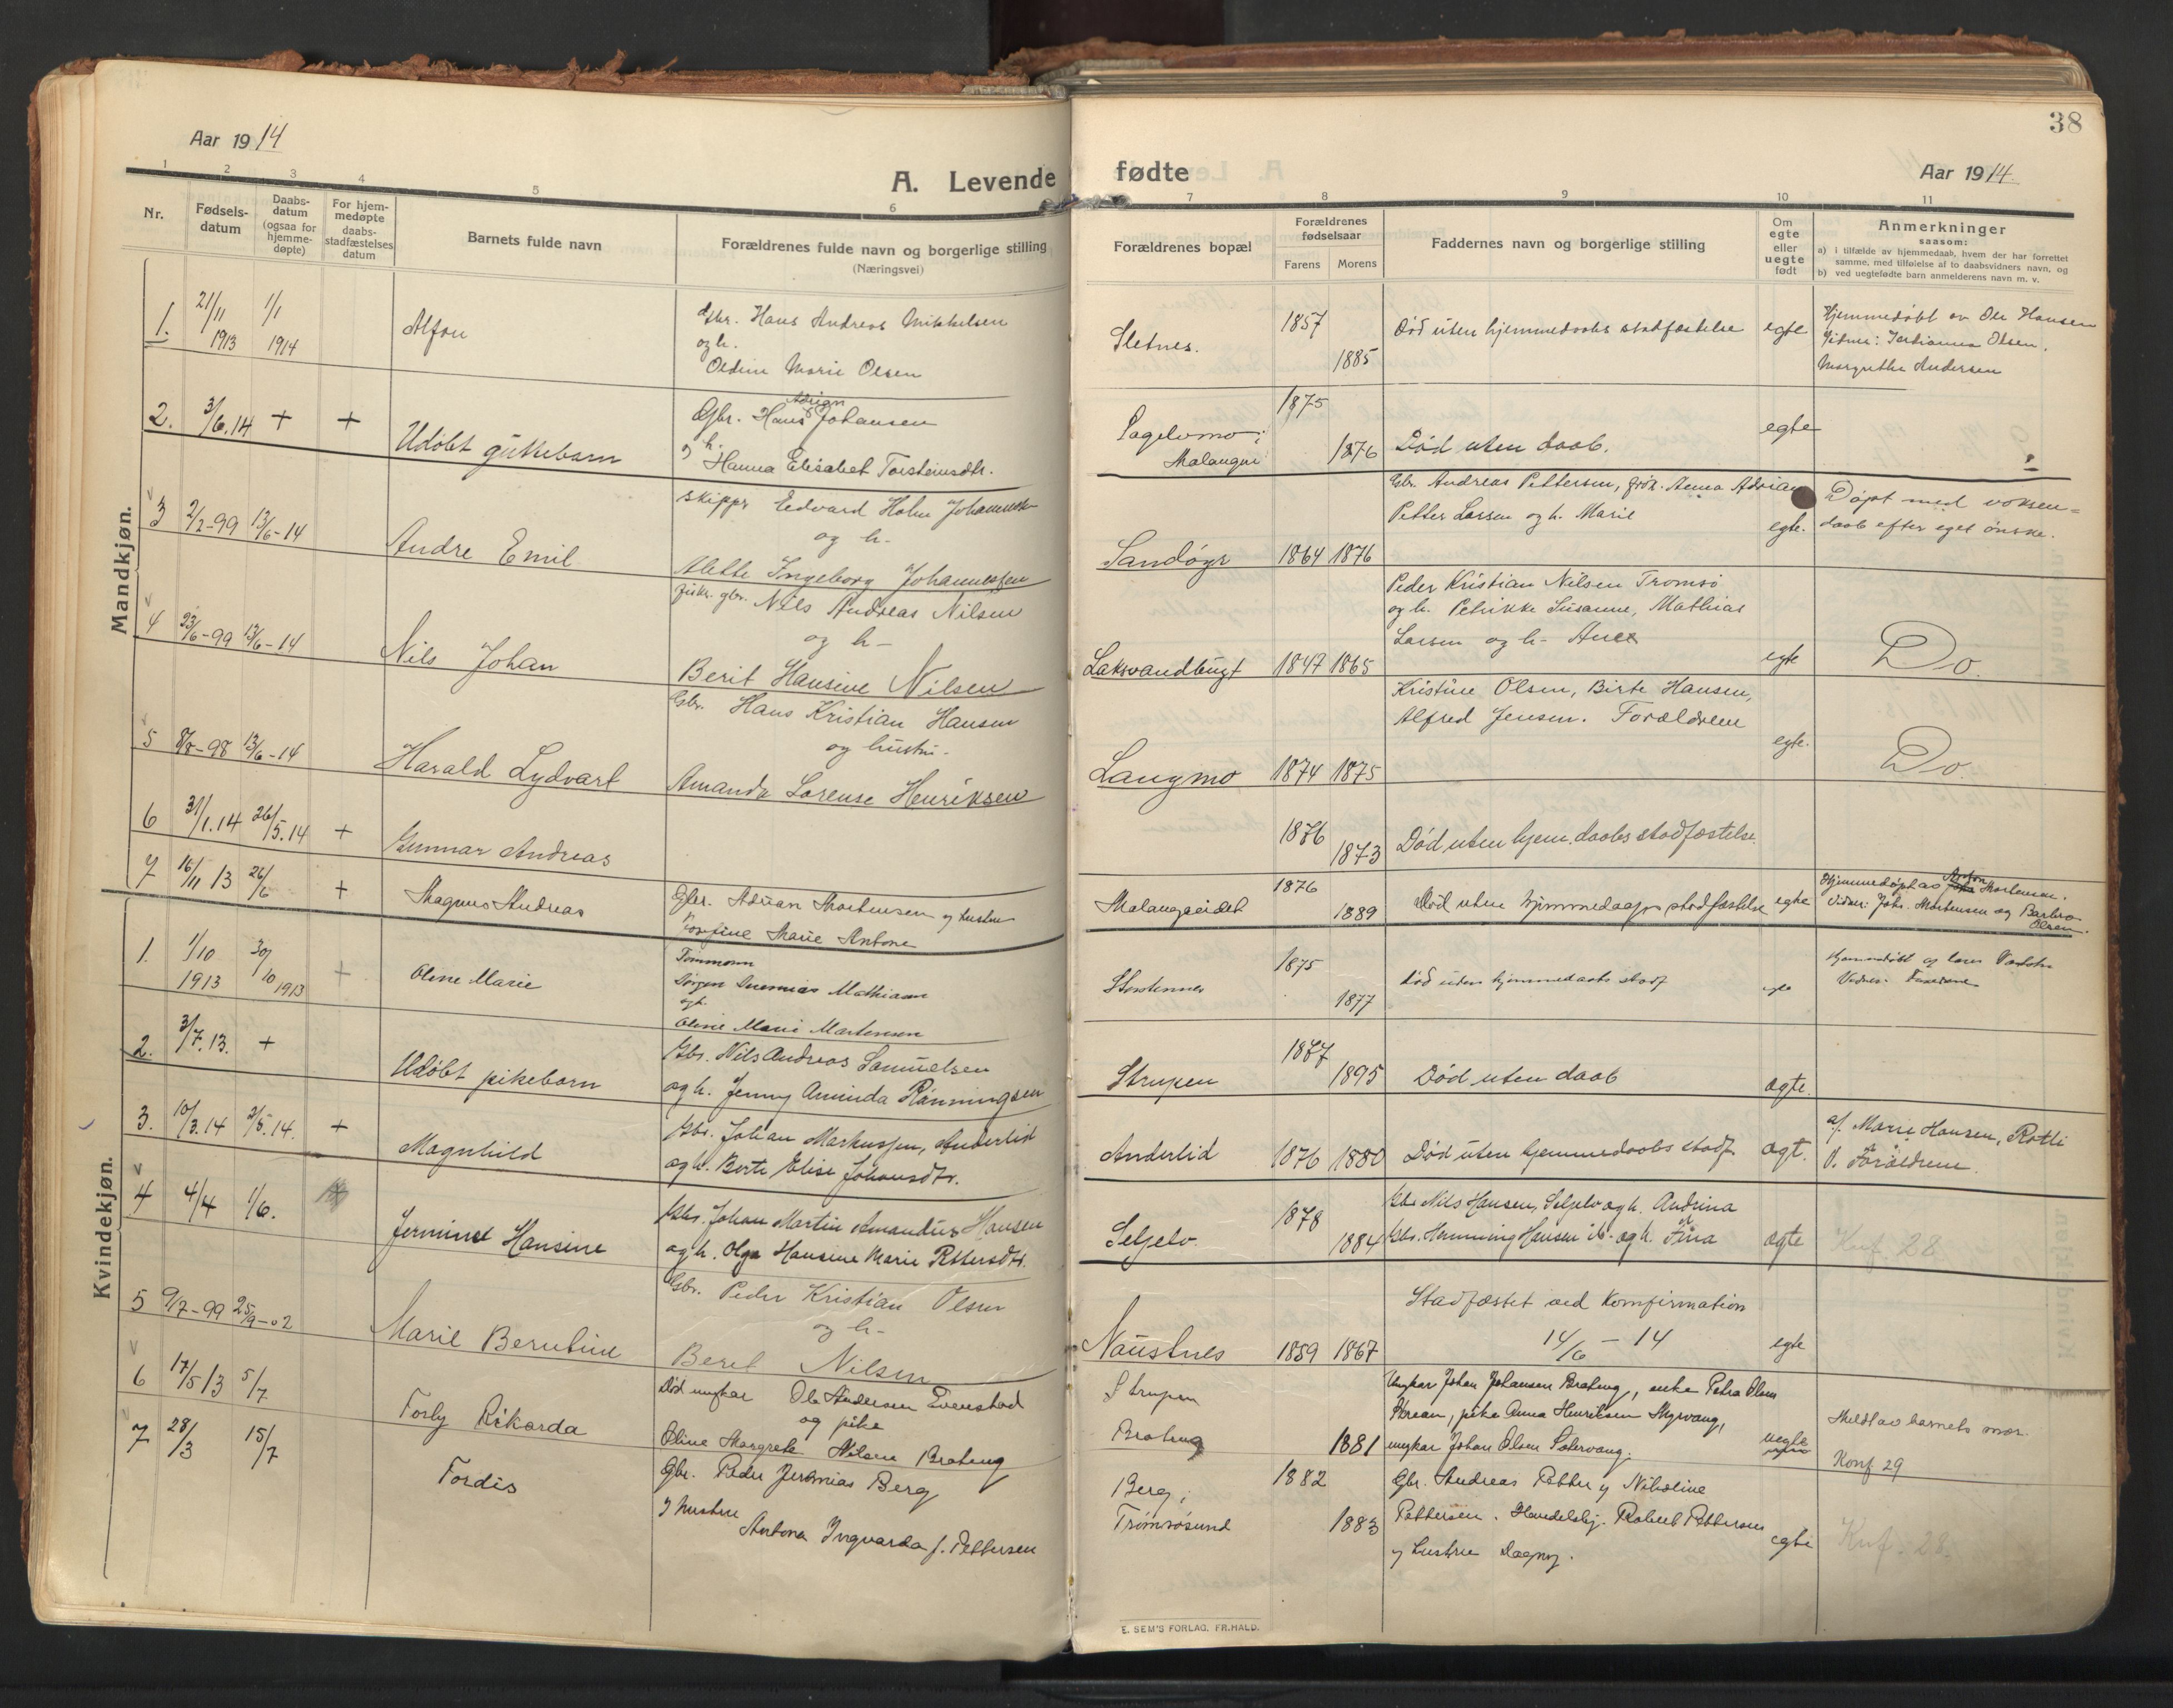 38
Aar 1914
A. Levende
fødte
Aar 1914.
1 2 3 4 5 6
7 8 9 10 11
Nr.
Fødsels-
datum
Daabs-
datum
(ogsaa for
hjemme-
døpte)
For hjem-
medøpte
daabs-
stadfæstelses
datum
Barnets fulde navn
Forældrenes fulde navn og borgerlige stilling
(Næringsvei)
Forældrenes bopæl
Forældrenes
fødselsaar
Farens Morens
Faddernes navn og borgerlige stilling
Om
egte
eller
uegte
født
Anmerkninger
saasom:
a) i tilfælde av hjemmedaab, hvem der har forrettet
samme, med tilføielse af to daabsvidners navn, og
b) ved uegtefødte barn anmelderens navn m. v.
Mandkjøn.
1. 21/11 1913 1/1 1914
Alfon
Gbr. Hans Andreas Mikkelsen
og h.
Oldine Marie Olsen
Sletnes. 1857 1885
Død uten hjemmedaabs stadfæstelse egte
Hjemmedøbt av Ole Hansen
Olsen.
Margrethe Andersen
2. 3/6.14 + +
Udøbt guttebarn
Gbr. Hans Adrian Johansen
og h.
Hanna Elisabet Torsteinsdtr.
Malangen 1875 1876
Død uten daab. egte
3 2/2-99 13/6-14
Andre Emil
Skippr Edvard Holm Johannessen
og h-
Alette Ingeborg Johannessen
Sandøyr 1864 1876
Gbr. Andreas Pettersen, Anna Adrian
Petter Larsen og h. Marie
egte.
Døpt med voksen=
daab efter eget ønske.
4 23/6-99 13/6-14
Nils Johan
Fisk. gbr. Nils Andreas Nilsen
og h-
Berit Hansine Nilsen
Laksvandbugt 1847 1865
Peder Kristian Nilsen Tromsø
og h. Petrikke Susanne, Mathias
Larsen og h- Anee
egte
Do.
5 8/8-98 13/6-14
Harald Lydvart
Gbr. Hans Kristian Hansen
og hustru.
Amanda Lorense Henriksen
Langmo 1874 1875
Kristine Olsen, Birte Hansen,
Alfred Jensen. Forældrene
egte.
Do.
6 31/1.14 26/5.14 +
Gunnar Andreas
1876 1873
Død uten hjem.daabs stadfæstelse.
7 16/11 13 26/6 +
Magnus Andreas
Gbr. Adrian Mortensen og hustru
Josefine Marie Antone
Malangseidet 1876 1889
Død uten hjemmedaaps stadfæstelse egte
Hjemmedøpt av Anton Mortensen.
Vidner: Johs. Mortensen og Barbro
Olsen.
Kvindekjøn.
1. 1/10 1913 30/10 1913 +
Oline Marie
Tømmerm
Jørgen Jeremias Mathisen
og h.
Oline Marie Martensen
Storstennes 1875 1877
Død uden hjemmedaabs stadf egte
Hjemmedøbt af
Vidner: Forældrene
2. 3/7.13. +
Udøbt pikebarn
Gbr. Nils Andreas Samuelsen
og h. Jenny Aminda Rønningsen
Strupen 1877 1895
Død uten daab ægte.
3. 10/3.14 2/5.14. +
Magnhild
Gbr. Johan Markussen, Anderlid
og h. Berte Elise Johansdtr.
Anderlid 1876 1880
Død uten hjemmedaabs stadf. ægt.
af. Marie Hansen, Rotli
V. Forældrene.
4 4/4 1/6.
Jermine Hansine
Gbr. Johan Martin Amandus Hansen
og h. Olga Hansine Marie Pettersdtr.
Seljelv. 1878 1884
Gbr Nils Hansen, Seljelv og h. Andrina
Gbr. Henning Hansen ib. og h. Fina
ægte
Knf. 28
5 9/7-99 25/9-02
Marie Berntine
Gbr. Peder Kristian Olsen
og h-
Berel Nilsen
Naustnes 1859 1867
Stadfæstet ved Konfirmation
14/6 - 14
egte
6 17/5 13 5/7
Torly Rikarda
Død ungkar Ole Andersen Evenstad
og pike
Oline Margrete Nilsen Brateng
Strupen
Brateng 1881
Ungkar Johan Johansen Brateng, enke Petra Olsen
pike Anna Henriksen Myrvang,
ungkar Johan Olsen Sætervang.
uegte
Meldt av barnets mor.
Konf 29
7 28/3 15/7
Tordis
Gbr. Peder Jeremias Berg
og hustru
Antona Ingvarda f. Pettersen
Berg i
Tromsøsund 1882 1883
Gbr. Andreas Petter og Nikoline
Pettersen. Handelsbj. Robert Pettersen
og hustru Dagny.
egte
Knf. 28.
E. SEM'S FORLAG, FR.HALD.